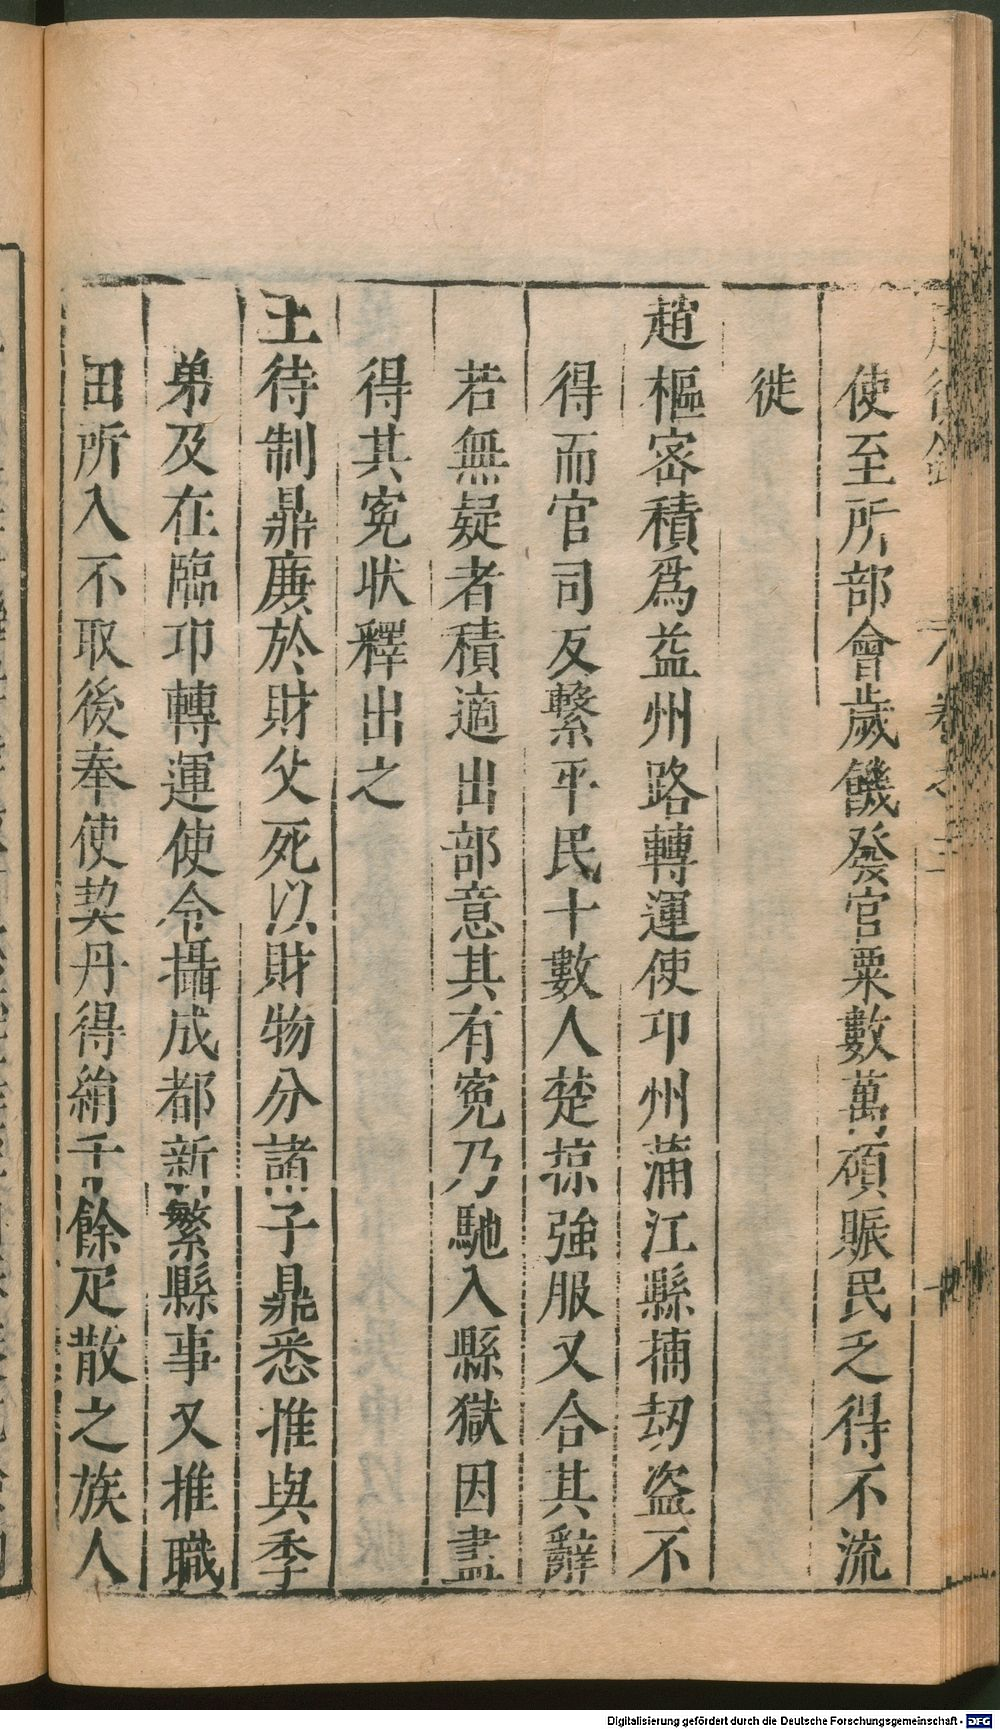 使至所部會歲饑發官粟數萬碩賑民乏得不流
徙
趙樞密積爲益州路轉運使卭州蒲江縣捕刼盗不
得而官司反繫平民十數人楚掠強服又合其辭
若無疑者積適出部意其有寃乃馳入縣獄因盡
得其寃狀釋出之
王待制鼎廉於財父死以財物分諸子鼎悉推與季
弟及在臨卭轉運使令攝成都新繁縣事又推職
田所入不取後奉使契丹得絹千餘疋散之族人
Digitalisierung gefördert durch die Deutsche Forschungsgemeinschaft - DFG